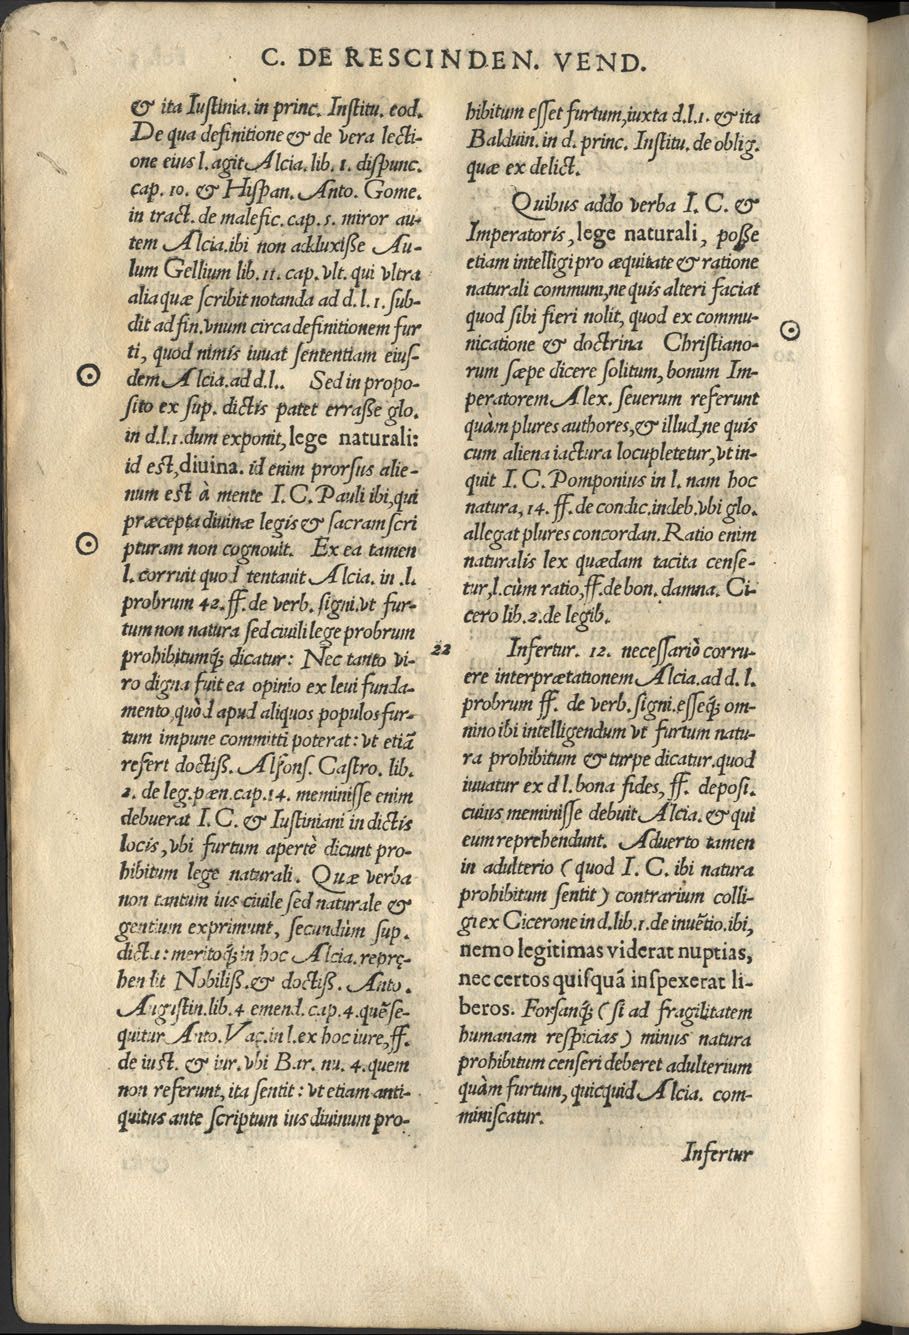 C. DE RESCINDEN. VEND.
& ita Iustinia. in princ. Institu. eod.
De qua definitione & de vera lecti-
one eius l. agit Alcia. lib. 1. dispunc.
cap. 10. & Hispan. Anto. Gome.
in tract. de malefic. cap. 5. miror au-
tem Alcia. ibi non adduxisse Au-
lum Gellium lib. 11. cap. vlt. qui vltra
alia quæ scribit notanda ad d. l. 1. sub-
dit ad fin. vnum circa definitionem fur
ti, quod nimis iuuat sententiam eius-
dem Alcia. ad d. l.. Sed in propo-
sito ex sup. dictis patet errasse glo.
in d. l. 1. dum exponit, lege naturali:
id est, diuina. id enim prorsus alie-
num est à mente I. C. Pauli ibi, qui
præcepta diuinæ legis & sacram scri
pturam non cognouit. Ex ea tamen
l. corruit quod tentauit Alcia. in .l.
probrum 42. ff. de verb. signi. vt fur-
tum non natura sed ciuili lege probrum
prohibitumq́; dicatur: Nec tanto vi-
ro digna fuit ea opinio ex leui funda-
mento, quòd apud aliquos populos fur-
tum impune committi poterat: vt etiã
refert doctiss. Alfons. Castro. lib.
2. de leg. pæn. cap. 14. meminisse enim
debuerat I. C. & Iustiniani in dictis
locis, vbi furtum apertè dicunt pro-
hibitum lege naturali. Quæ verba
non tantum ius ciuile sed naturale &
gentium exprimunt, secundùm sup.
dicta: meritoq́; in hoc Alcia. reprę-
hendit Nobiliss. & doctiss. Anto.
Augustin. lib. 4 emend. cap. 4. quẽ se-
quitur Anto. Vaç. in l. ex hoc iure, ff.
de iust. & iur. vbi Bar. nu. 4. quem
non referunt, ita sentit: vt etiam anti-
quitus ante scriptum ius diuinum pro-
hibitum esset furtum, iuxta d. l. 1. & ita
Balduin. in d. princ. Institu. de oblig.
quæ ex delict.
Quibus addo verba I. C. &
Imperatoris, lege naturali, posse
etiam intelligi pro æquitate & ratione
naturali communi, ne quis alteri faciat
quod sibi fieri nolit, quod ex commu-
nicatione & doctrina Christiano-
rum sæpe dicere solitum, bonum Im-
peratorem Alex. seuerum referunt
quàm plures authores, & illud, ne quis
cum aliena iactura locupletetur, vt in-
quit I. C. Pomponius in l. nam hoc
natura, 14. ff. de condic. indeb. vbi glo.
allegat plures concordan. Ratio enim
naturalis lex quædam tacita cense-
tur, l. cùm ratio, ff. de bon. damna. Ci-
cero lib. 2. de legib.
22
Infertur. 12. necessariò corru-
ere interprætationem Alcia. ad d. l.
probrum ff. de verb. signi. esseq́; om-
nino ibi intelligendum vt furtum natu-
ra prohibitum & turpe dicatur. quod
iuuatur ex d l. bona fides, ff. deposi.
cuius meminisse debuit Alcia. & qui
eum reprehendunt. Aduerto tamen
in adulterio (quod I. C. ibi natura
prohibitum sentit) contrarium colli-
gi ex Cicerone in d. lib. 1. de inuẽtio. ibi,
nemo legitimas viderat nuptias,
nec certos quisquã inspexerat li-
beros. Forsanq́; (si ad fragilitatem
humanam respicias) minus natura
prohibitum censeri deberet adulterium
quàm furtum, quicquid Alcia. com-
miniscatur.
Infertur